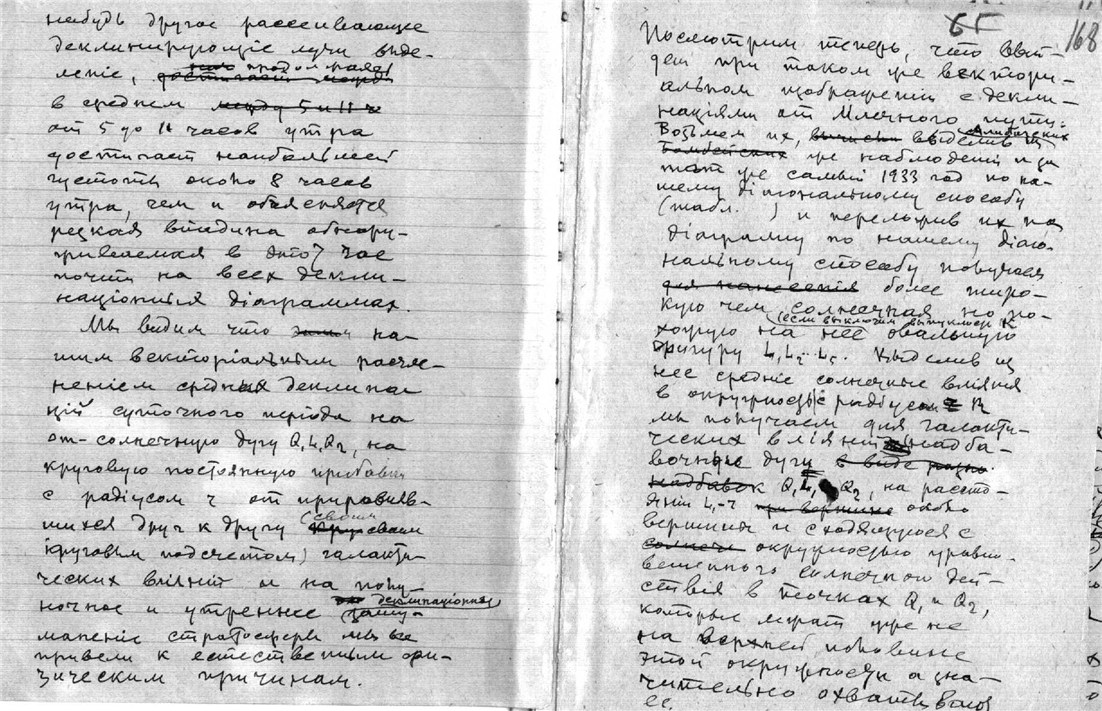 нибудь другое рассеивающее
деклинирующіе лучи выде-
леніе,
в среднем
от 5 до 11 часов утра
достигает наибольшей
густоты около 8 часов
утра, чем и объясняется
резкая впадина обнару-
живаемая в это час
почти на всех декли-
націонныя діаграммах.
Мы видим что на-
шим векторіальным расчле-
неніем средных деклина
цій суточного періода на
от-солнечную дугу Q₁L₁Q₂, на
круговую постоянную прибавку
с радіусом ч от приравняв-
шихся друг к другу (своим
круговым подсчетом) галакти-
ческих вліяній и на полу-
ночное и утреннее деклинаціонная
маненіе стратосферы мы все
привели к естественным фи-
зическим причинам.
6Г
168
Посмотрим теперь, что вый-
дет при таком же вектори-
альном изображеніи с декли-
націями от Млечного пути.
Возьмем их, выделив из
же наблюденій и за
тот же самый 1933 год по на-
шему діагональному способу
(табл. ) и переложив их на
діаграмму по нашему діаго-
нальному способу получаем
более широ-
кую чем солнечная но по-
(если выключим выпуклость К
хожую на нее овальную
фигуру L₁L₂...L₅. Выделив из
нее средніе солнечные вліянія
в окружность с радіусом R
мы получаем для галакти-
ческих вліяній надба-
вочные дуги
Q₁L₁Q₂, на расстоя-
яніи L₁-ч около
вершины и сходящуюся с
окружностью уравно-
вешенного солнечного дей-
ствія в точках Q₁ и Q₂,
которые лежат уже не
на верхней половине
этой окружности а зна-
чительно охватывают
ее.